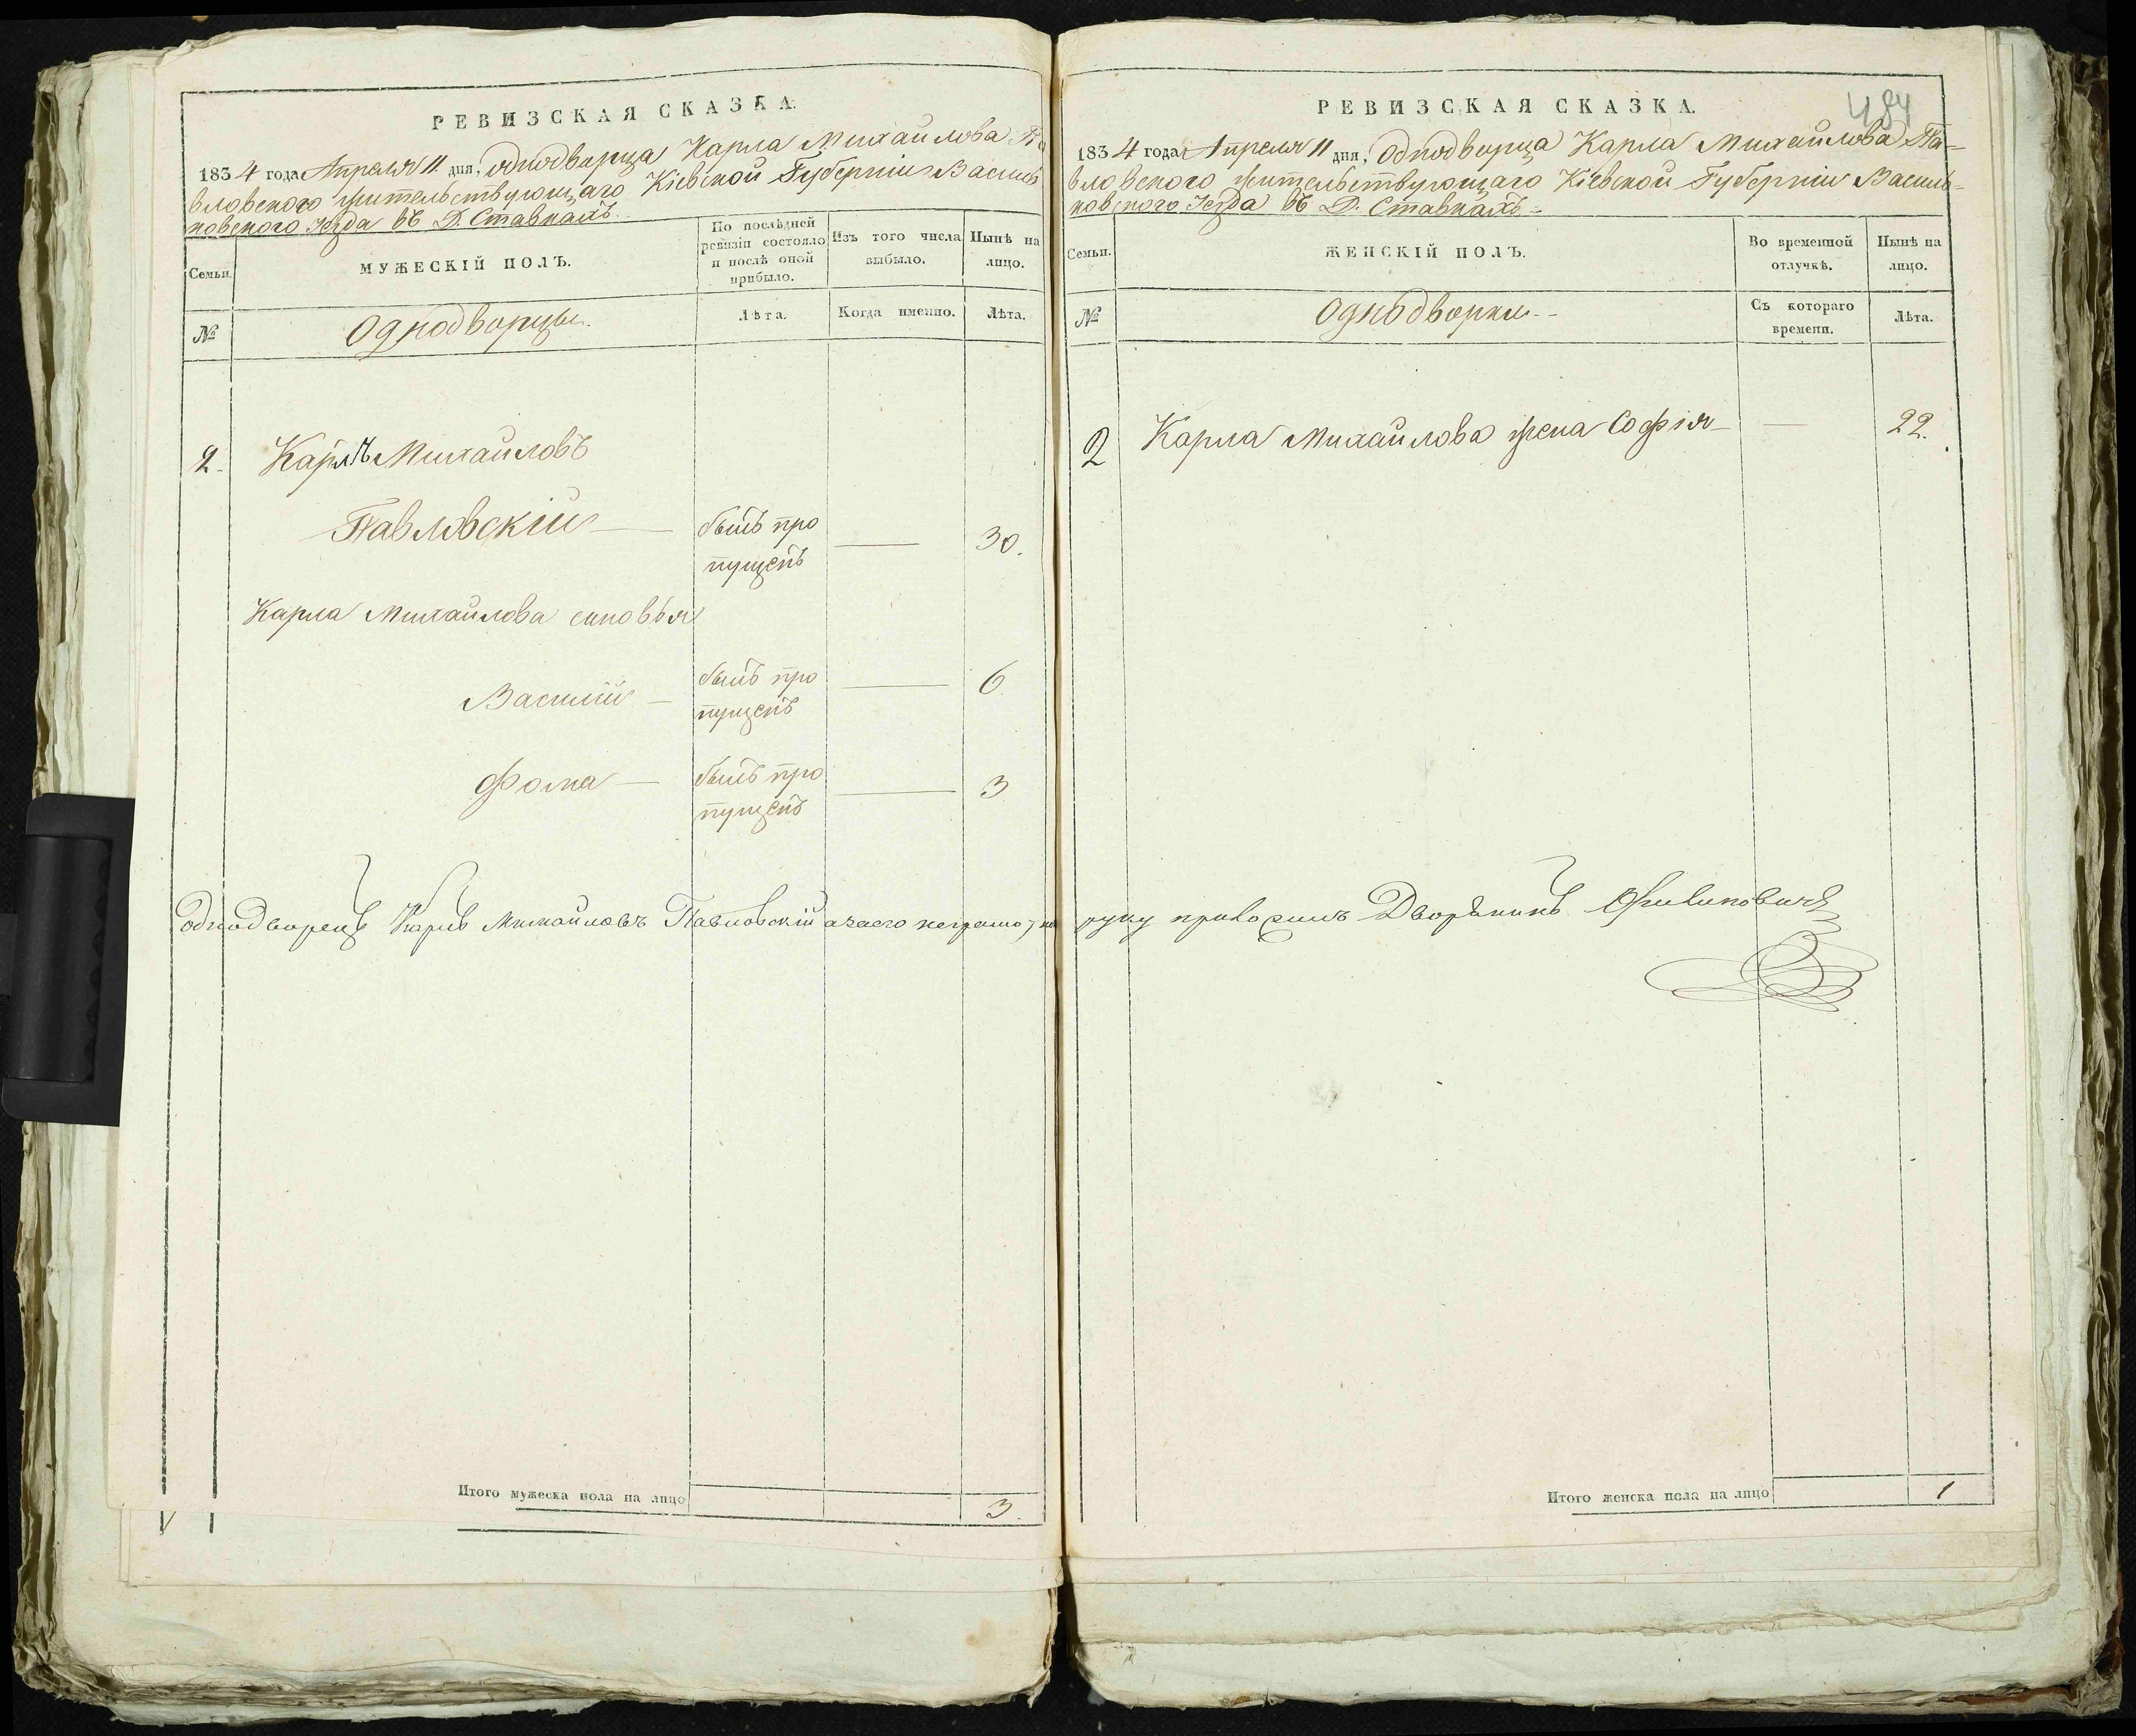 РЕВИЗСКАЯ СКАЗКА.
1834 года Апреля 11 дня, Однодворца Карла Михайлова Па
вловского жительствующаго Кіевской Губерніи Василь
ковского Уезда въ Д. Ставкахъ.
Семьи.
МУЖЕСКІЙ ПОЛЪ.
По послѣдней
ревизіи состояло
и послѣ оной
прибыло.
Изъ того числа
выбыло.
Нынѣ на
лицо.
№
Однодворцы.
Лѣта.
Когда именно.
Лѣта.
2. Карлъ Михайловъ
Павловскій — былъ про — 30.
пущенъ
Карла Михайлова сыновья
Василій — былъ про — 6
пущенъ
Фома — былъ про — 3
пущенъ
Однодворецъ Карлъ Михайловъ Павловскій а за его неграмотно
Итого мужеска пола на лицо 3.
РЕВИЗСКАЯ СКАЗКА.
484
1834 года Апреля 11 дня, Однодворца Карла Михайлова Па-
вловского жительствующаго Кіевской Губерніи Василь-
ковского Уезда въ Д. Ставкахъ-
Семьи.
ЖЕНСКІЙ ПОЛЪ.
Во временной
отлучкѣ.
Нынѣ на
лицо.
№
Однодворки.-
Съ котораго
времени.
Лѣта.
2 Карла Михайлова жена Софія — 22.
руку приложилъ Дворянинъ Филиповичъ
Итого женска пола на лицо 1